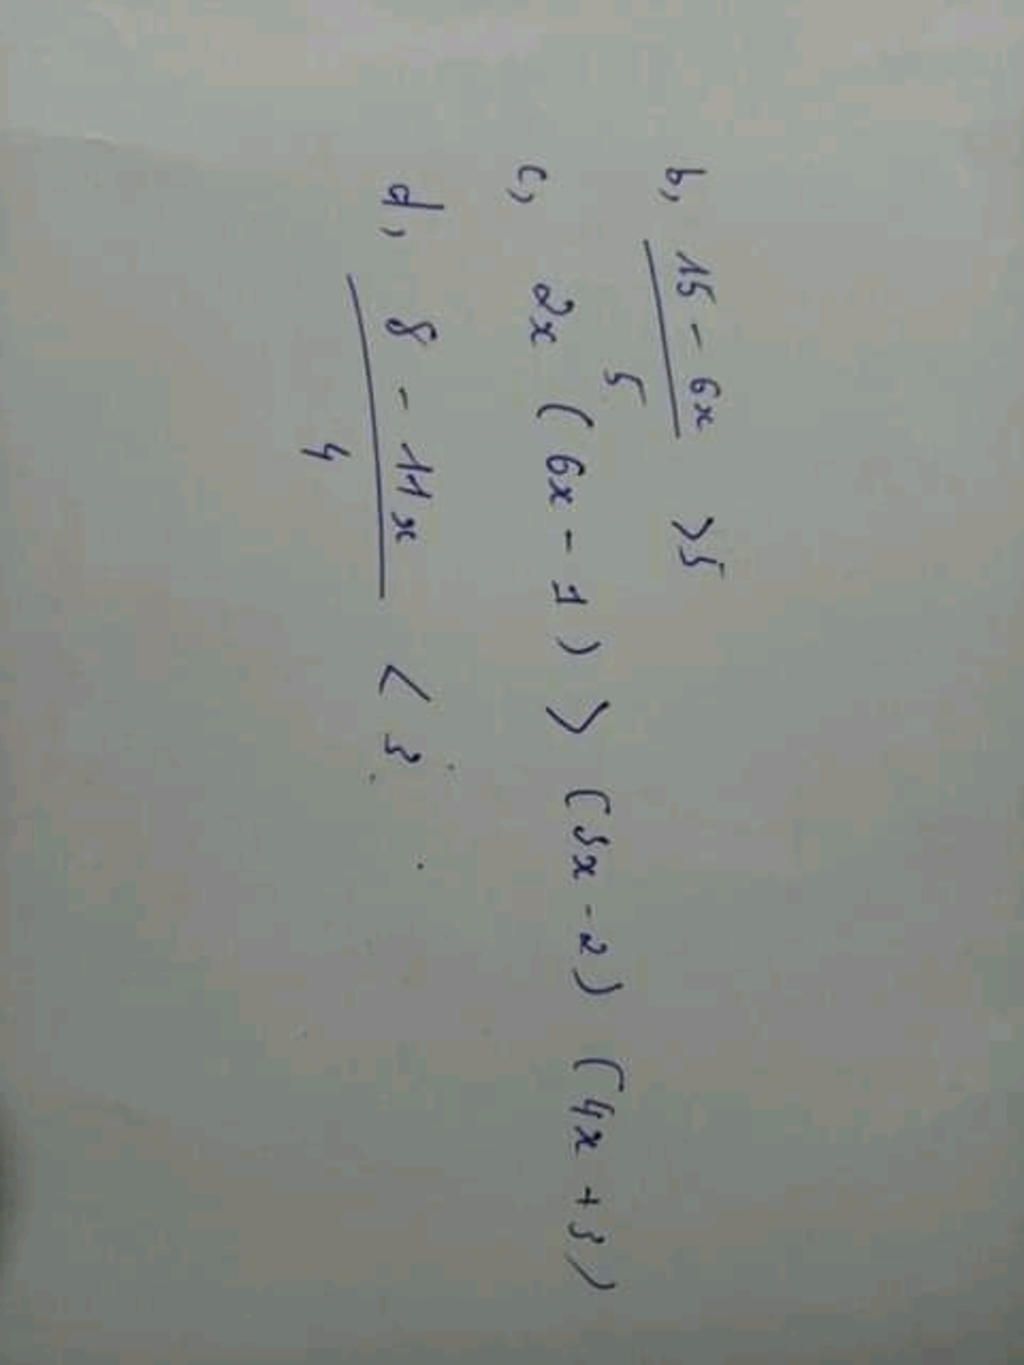 b, 15 - 6x / 5 > 5
c, 2x ( 6x - 1 ) > ( 3x - 2 ) ( 4x + 3 )
d, 8 - 11x / 4 < 3